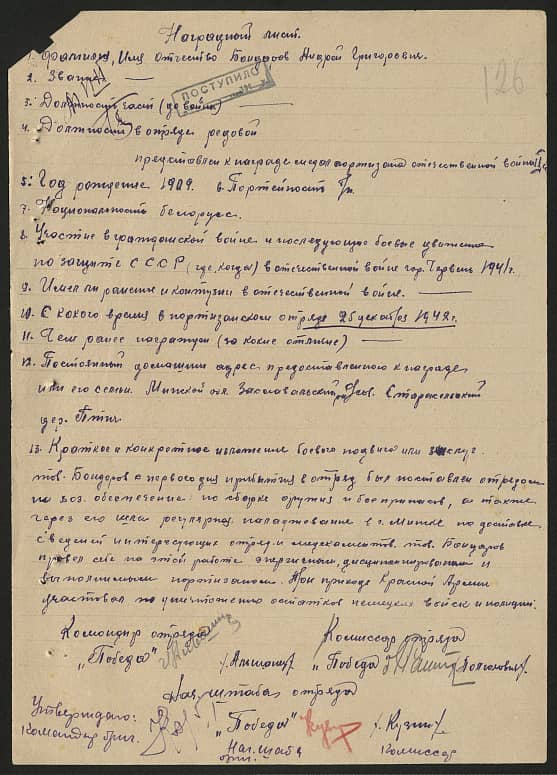 Наградной лист.
1. Фамилия, Имя отчество Бондаров Андрей Григоревич.
126
2. Звание —
ПОСТУПИЛО
3. Должность (до войны) —
4. Должность в отряде редовой
представлен к награде медаль партизана отечественной войны II
5. Год рождение 1909. в. Портейность
7. Национальность белорусс.
8. Участие в гражданской войне и последующие боевые
по защите СССР (где, когда) в отечественной войне гор. Червень 1941г.
9. Имел ли ранение и контузии в отечественной войне. —
10. С кокого время в портизанском отряде 25 декабря 1942 г.
11. Чем ранее награжден (за кокие отличие) —
12. Постоянный домашний адрес предоставленного к награде
или его семьи. Минской обл. Заславльский
дер. Птич
13. Краткое и конкретное изложение боевого подвига или заслуг.
тов. Бондоров с первого дня прибытия в отряд был поставлен отрядом
по обеспечение: по сборке оружия и боеприпасов, а также
через его шли в г. Минск по доставке
сведений интересующих отряд и медекаментов. тов. Бондаров
провел себе на этой работе энергичным, дисциплинированным и
портизаном. При приходе Красной Армии
участвовал по уничтожению остатков немецких войск и полиции.
Командир отряда
Комиссар отряда
"Победа"
"Победа"
Нач. штаба отряда
Утверждаю:
"Победа"
/. Кузин /
Командир бриг.
Нач. штаба
бриг.
Комиссар